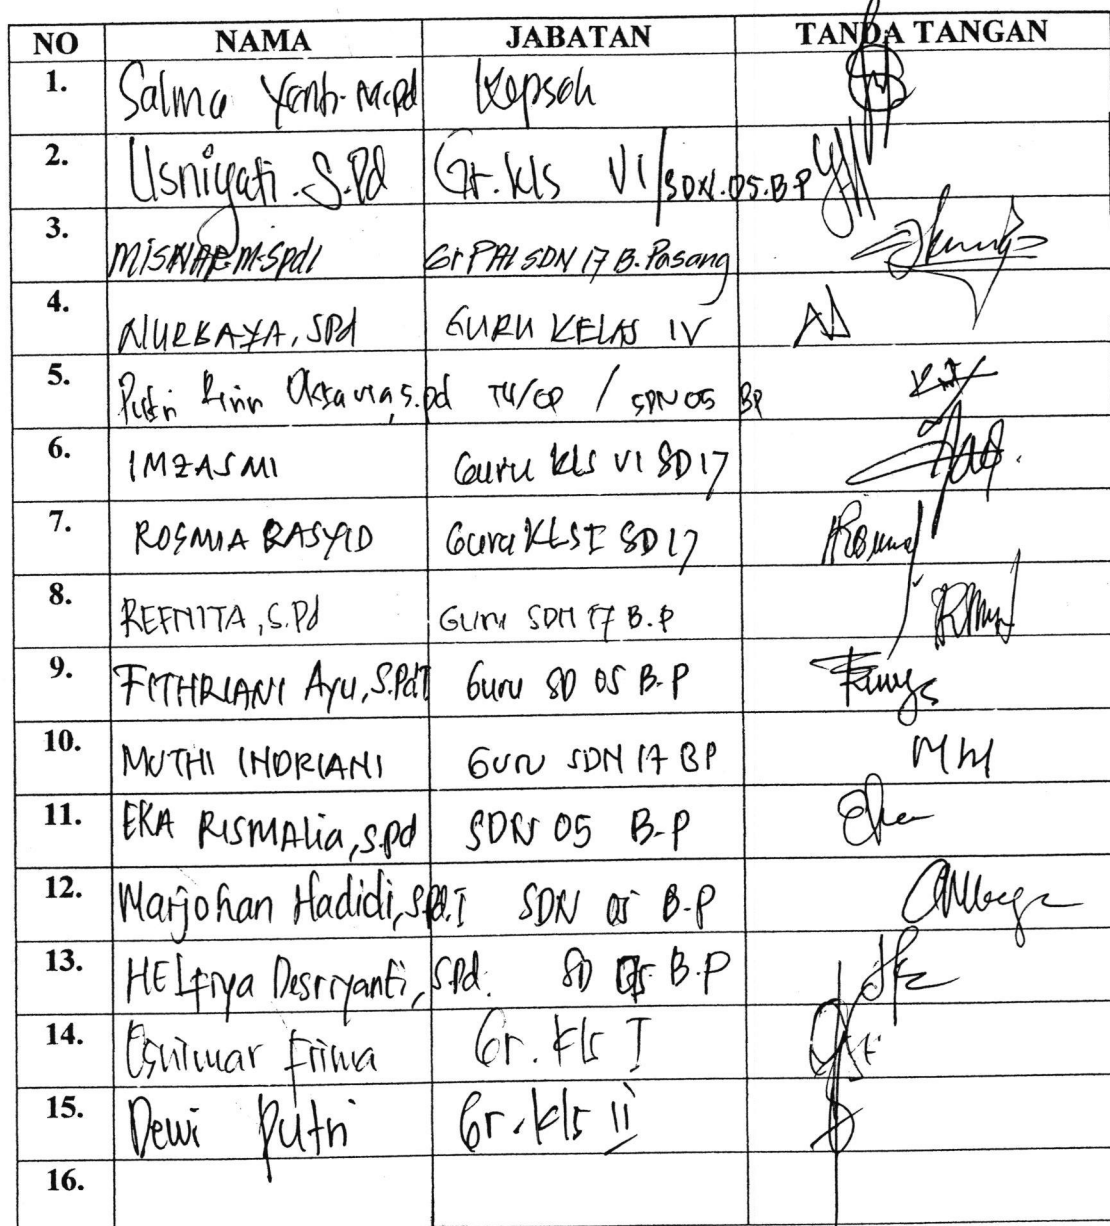 NO NAMA JABATAN TANDA TANGAN
1. Salma Yanti M.Pd Kepsek
2. Usniyati.S.Pd Gr.kls VI/SDN.05.B.P
3. MISNAR.M.SPdI Gr PAI SDN 17 B.Pasang
4. NURBAYA, SPd GURU KELAS IV
5. Putri Oktavia, S.pd TU/OP / SDN 05 BP
6. IMZASMI Guru kls VI SD 17
7. ROSMIA RASYID Guru KLS I SD 17
8. REFNITA, S.Pd Guru SDN 17 B.P
9. FITHRIANI Ayu, S.PdI Guru SD 05 B.P
10. MUTHI INDRIANI Guru SDN 17 BP
11. EKA RISMALia, S.pd SDN 05 B.P
12. Marjohan Hadidi, S.Pd.I SDN 05 B.P
13. HELfiya Desriyanti, S.Pd. SD 05 B.P
14. Gr. Kls I
15. Dewi Putri Gr. kls II
16.